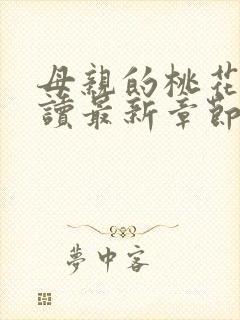 母親的桃花
讀最新章節
夢中客